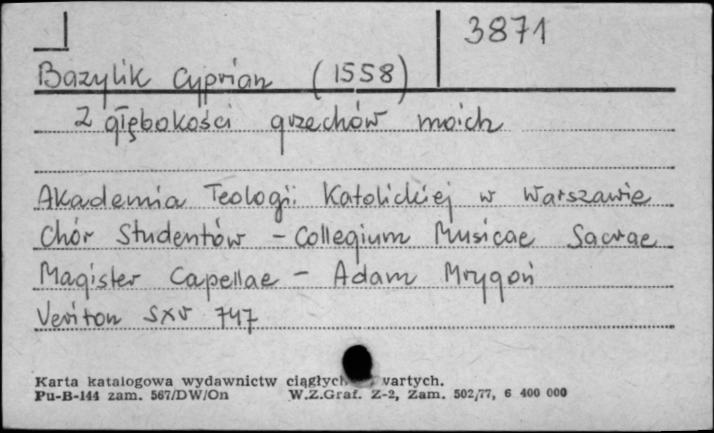 3871
Bazylik Cyprian (1558)
Z głębokości grzechów moich
Akademia Teologii Katolickiej w Warszawie
Chór Studentów - Collegium Musicae Sacrae
Magister Capellae - Adam Mrygoń
Veriton SXV 747
Karta katalogowa wydawnictw ciągłych vartych.
Pu-B-144 zam. 567/DW/On W.Z.Graf. Z-2, Zam. 502/77, 6 400 000